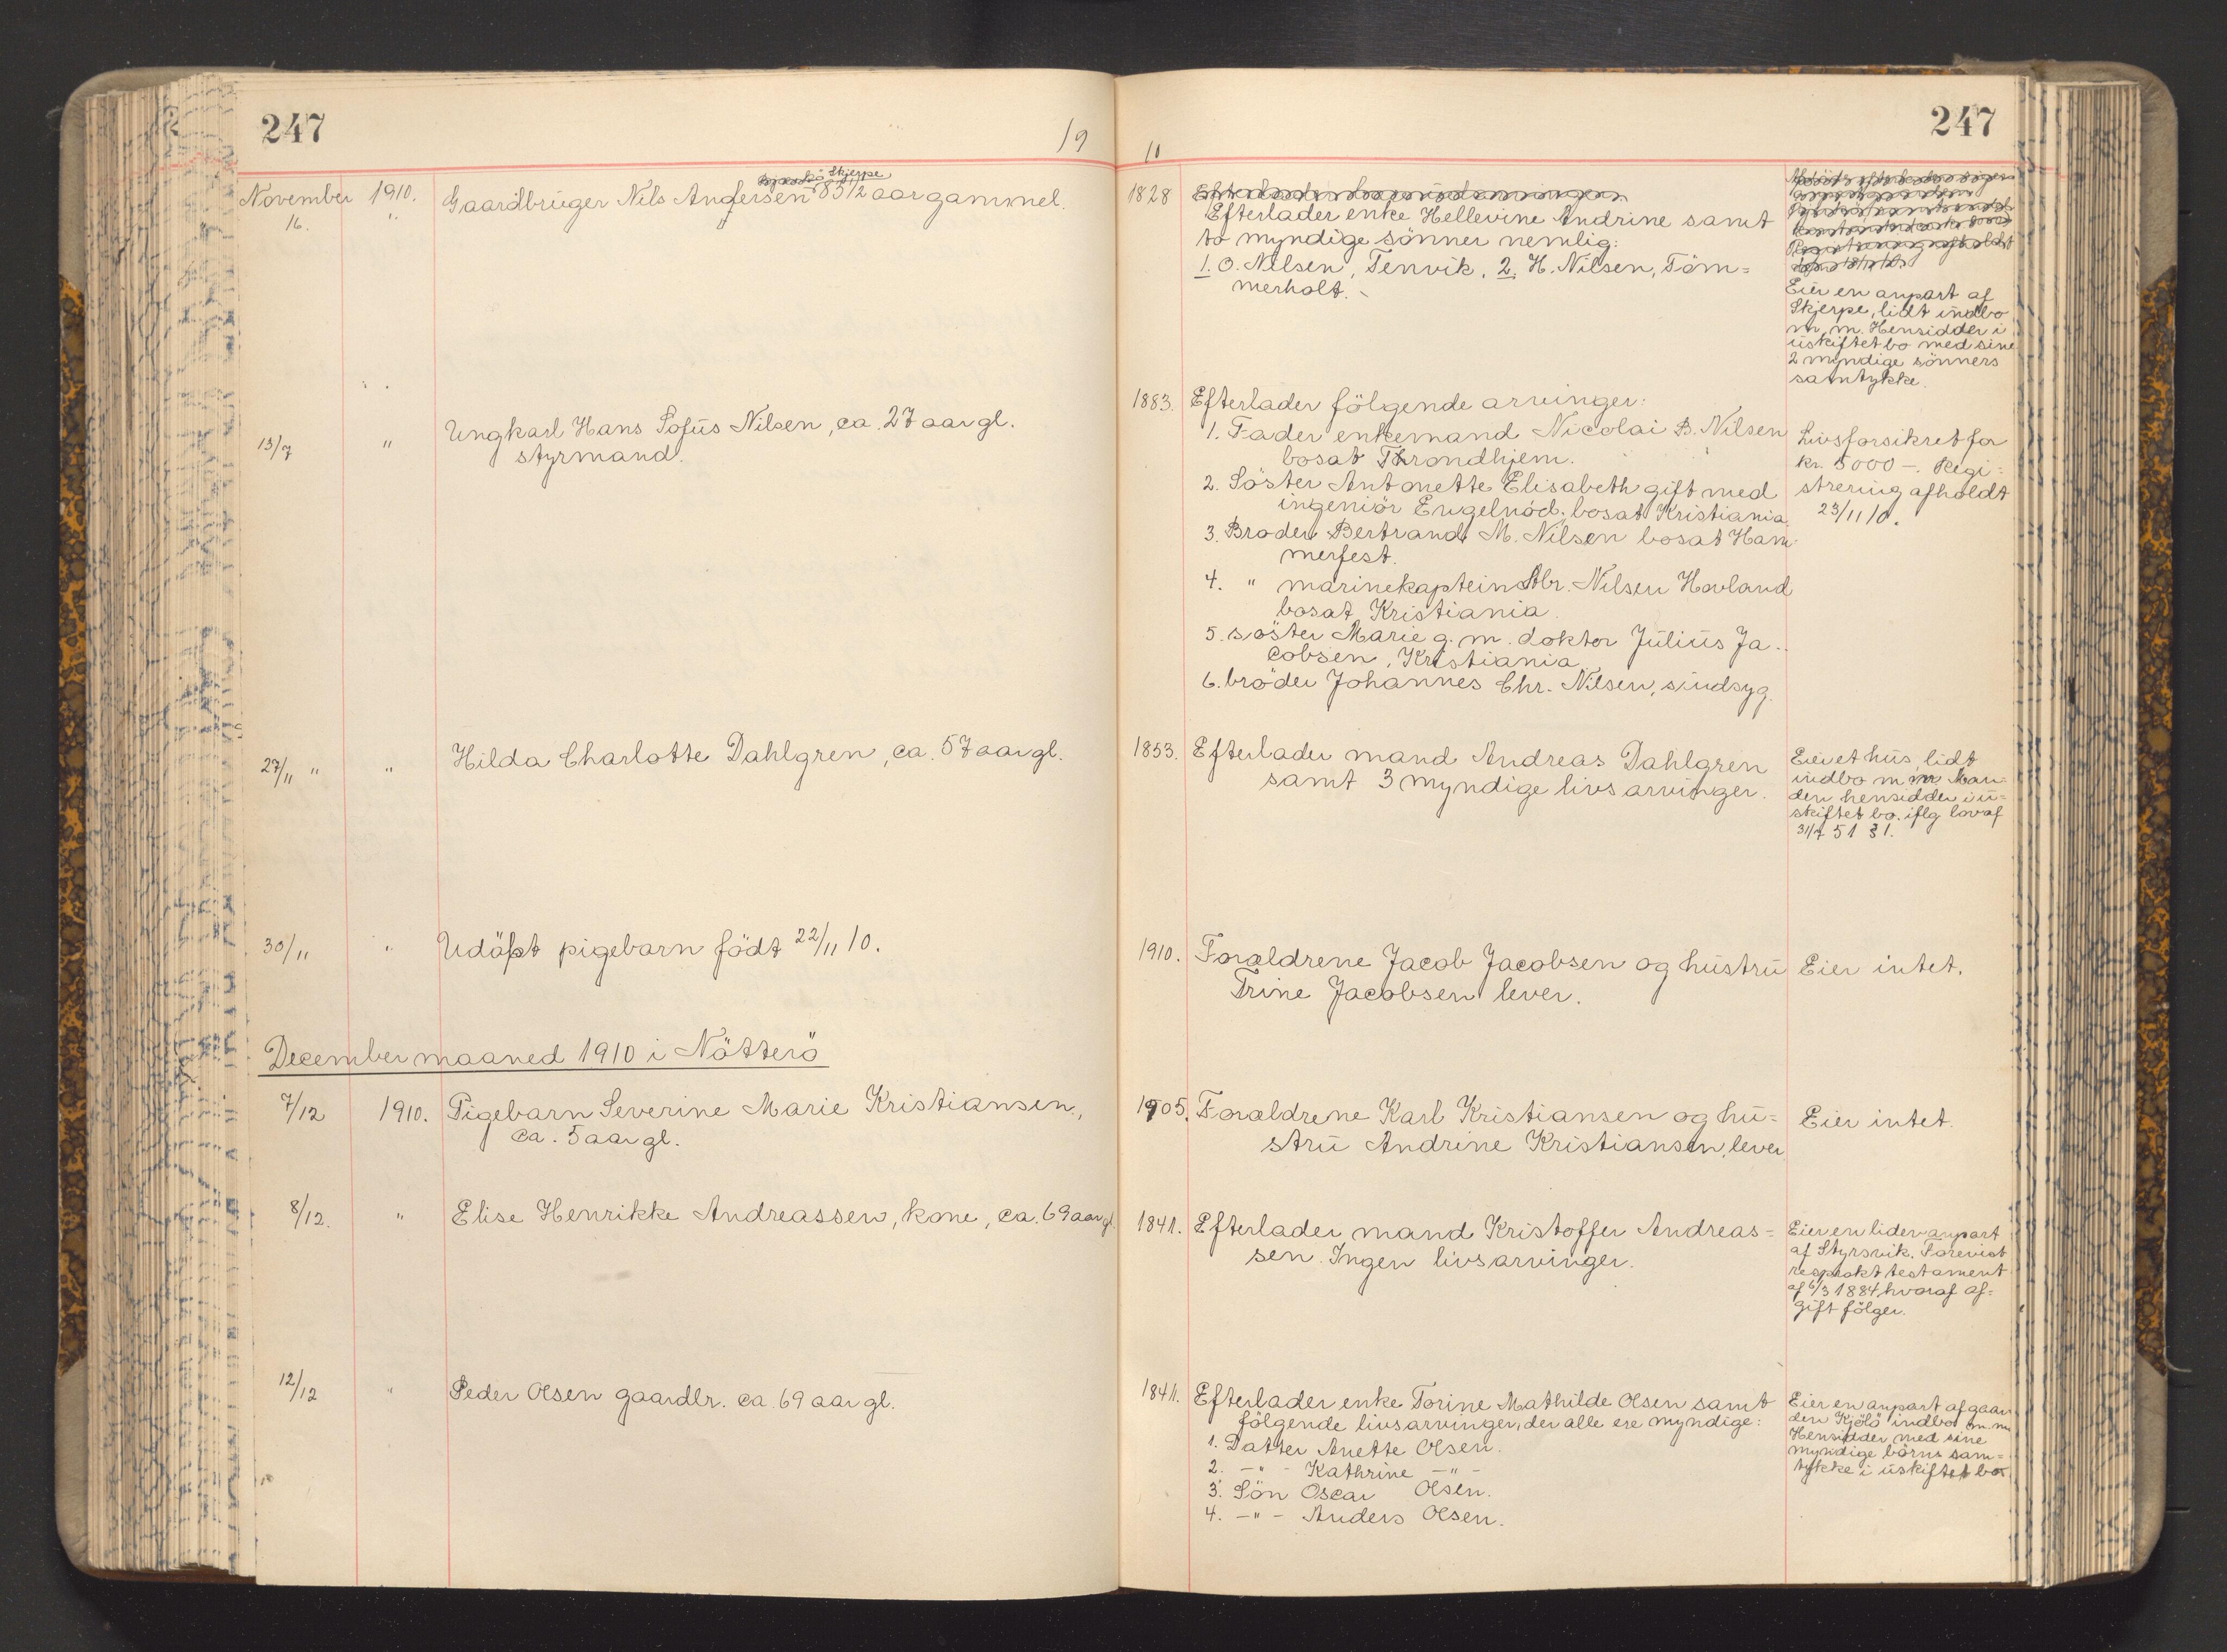 247
19
November 1910. Gaardbruger Nils Andersen Skjerpe 83 1/2 aar gammel.
16. "
13/7 " Ungkarl Hans Sofus Nilsen, ca. 27 aar gl.
styrmand.
27/11 " " Hilda Charlotte Dahlgren, ca. 57 aar gl.
30/11 " Udöpt pigebarn födt 22/11 10.
December maaned 1910 i Nötterö
7/12 1910. Pigebarn Severine Marie Kristiansen,
ca. 5 aar gl.
8/12. " Elise Henrikke Andreassen, kone, ca. 69 aar gl.
12/12 " Peder Olsen gaardbr. ca. 69 aar gl.
247
10
1828
Efterlader enke Hellevine Andrine samt
to myndige sönner nemlig:
1. O. Nilsen, Tenvik, 2. H. Nilsen, Töm=
merholt.
Eier en anpart af
Skjerpe, lidt indbo
m. m. Hensidder i
uskiftet bo med sine
2 myndige sönners
samtykke.
1883. Efterlader fölgende arvinger:
1. Fader enkemand Nicolai B. Nilsen
bosat Throndhjem.
2. Söster Antonette Elisabeth gift med
ingeniör Engelnod. bosat Kristiania
3. Broder Bertrand M. Nilsen bosat Ham-
merfest.
4. " marinekaptein Nilsen Hovland
bosat Kristiania.
5. söster Marie g. m. doktor Julius Ja-
cobsen, Kristiania.
6. broder Johannes Chr. Nilsen, sindsyg.
Livsforsikret for
kr. 5000 -. Regi=
strering afholdt
23/11 10.
1853. Efterlader mand Andreas Dahlgren
samt 3 myndige livsarvinger.
Eier et hus, lidt
indbo m. m. Man=
den hensidder i u=
skiftet bo. iflg lov af
31/7 51 § 1.
1910. Forældrene Jacob Jacobsen og hustru
Trine Jacobsen lever.
Eier intet.
1905. Forældrene Karl Kristiansen og hu=
stru Andrine Kristiansen, lever
Eier intet.
1841. Efterlader mand Kristoffer Andreas=
sen. Ingen livsarvinger.
Eier en liden anpart
af Styrsvik. Forevist
testament
af 6/3 1884 hvoraf af=
gift fölger.
1841. Efterlader enke Torine Mathilde Olsen samt
fölgende livsarvinger, der alle ere myndige:
1. Datter Anette Olsen.
2. -"- Kathrine -"-
3. Sön Oscar Olsen.
4. -"- Anders Olsen.
Eier en anpart af gaar
den Kjölö indbo m. m.
Hensidder med sine
myndige börns sam=
tykke i uskiftet bo.